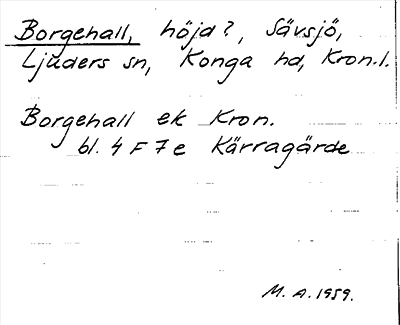 Borgehall, höjd?, Sävsjö,
Ljuders sn, Konga hd, Kron.l.
Borgehall ek Kron.
bl. 4 F 7 e Kärragärde
M. A. 1959.